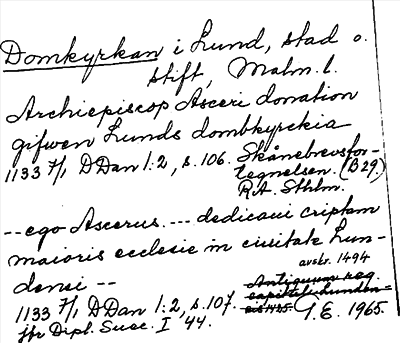 Domkyrkan i Lund, stad o.
stift, Malm. l.
Archiepiscop Asceri donation
gifwen Lunds dombkyrckia
1133 7/1, DDan 1:2, s. 106. Skånebrevsför-
tegnelsen. (B29)
R.A. Sthlm.
-- ego Ascerus. --- dedicaui criptam
maioris ecclesie in ciuitate Lun-
densi --
avskr. 1494
1133 7/1, DDan 1:2, s. 107. Antiquum reg.
capituli Lunden-
jfr Dipl. Suec. I 44. G.E. 1965.